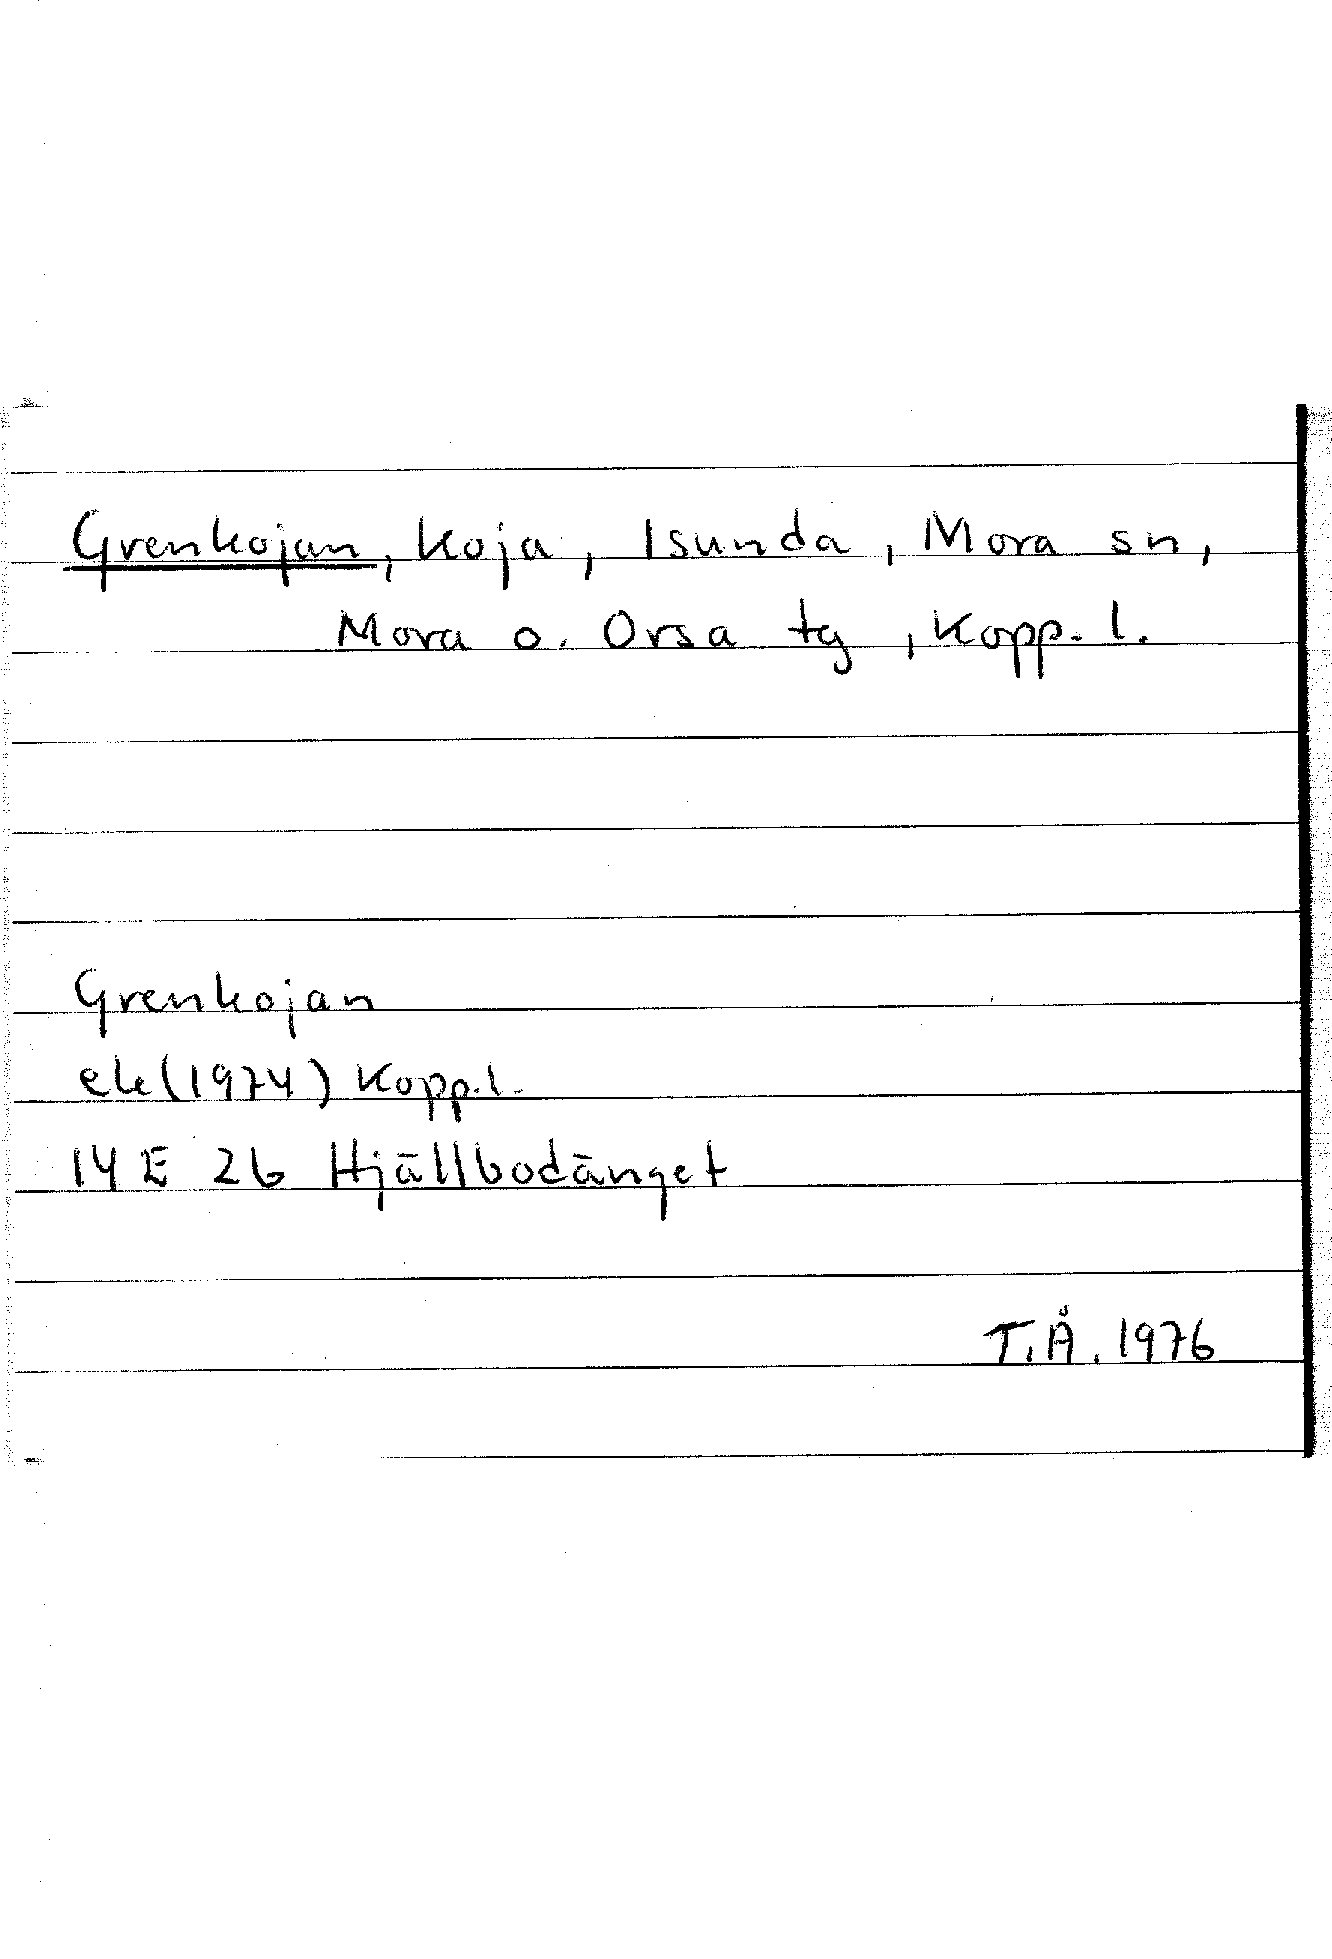 Grenkojan, koja, Isunda, Mora sn,
Mora o. Orsa tg, Kopp. l.
Grenkojan
ek(1974) Kopp.l.
14E 2b Hjällbodänget
T.Å. 1976